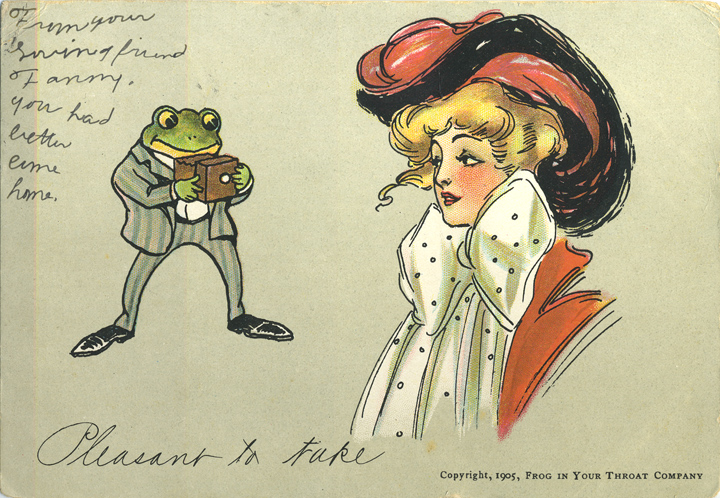 From your
loving friend
Fanny.
you had
better
come
home.
Pleasant to take
Copyright, 1905, FROG IN YOUR THROAT COMPANY